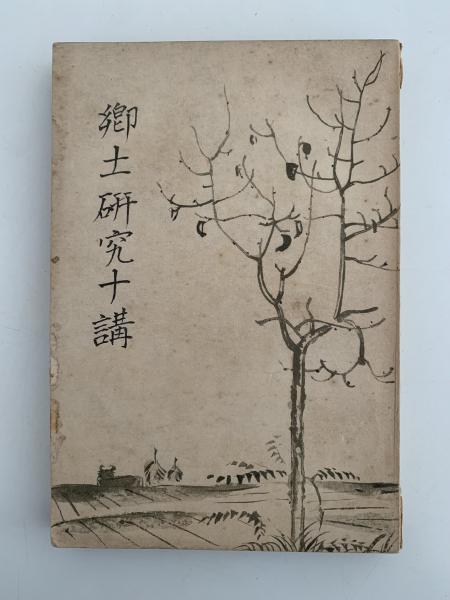 鄉土研究十講